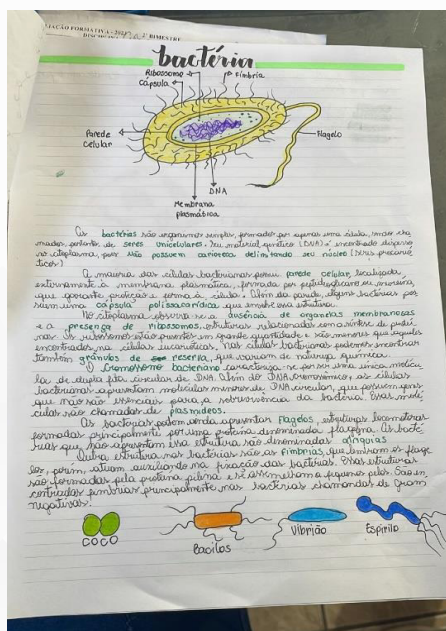 AÇÃO FORMATIVA - 2º BIMESTRE
bactéria
Ribossomo
Fímbria
Cápsula
Parede
Celular
Flagelo
DNA
Membrana
plasmática
As bactérias são organismos simples, formados por apenas uma célula, sendo cha
madas, portanto, de seres unicelulares. Seu material genético (DNA) é encontrado disperso
no citoplasma, por não possuem carioteca delimitando seu núcleo (seres procarió
ticos).
A maioria das células bacterianas possui parede celular, localizada
externamente à membrana plasmática, formada por peptidoglicano ou mureína,
que garante proteção e forma à célula. Além da parede, algumas bactérias pos
suem uma cápsula polissacarídica, que envolve essa estrutura.
No citoplasma observa-se a ausência de organelas membranosas
e a presença de ribossomos, estruturas relacionadas com a síntese de proteí
nas. Os ribossomos estão presentes em grande quantidade e são menores que aqueles
encontrados na células eucarióticas. Nas células bacterianas podemos encontrar
também grânulos de reserva, que variam de natureza química.
O Cromossomo bacteriano caracteriza-se por ser uma única molécu
la de dupla fita circular de DNA. Além do DNA cromossômico, as células
bacterianas apresentam moléculas menores de DNA circular, que possuem genes
que não são essenciais para a sobrevivência da bactéria. Essas molé
culas são chamadas de plasmídeos.
As bactérias podem ainda apresentar flagelos, estruturas locomotoras
formadas principalmente por uma proteína denominada flagelina. As bacté
rias que não apresentam essa estrutura são denominadas
Outra estrutura nas bactérias são as fímbrias, que lembram os flage
los, porém, atuam auxiliando na fixação das bactérias. Essas estruturas
são formadas pela proteína pilina e se assemelham a pequenos pelos. São en
contradas fímbrias principalmente nas bactérias chamadas de Gram
negativas.
COCO
Bacilos
Vibrião
Espirilo